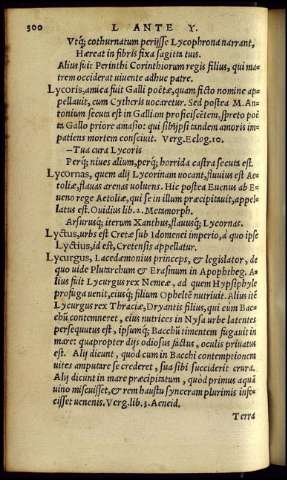 300 L ANTE Y.
Vtq́; cothurnatum perijsse Lycophrona narrant,
Hæreat in fibris fixa sagitta tuis.
Alius fuit Perinthi Corinthiorum regis filius, qui ma-
trem occiderat uiuente adhuc patre.
Lycoris, amica fuit Galli poëtæ, quam ficto nomine ap-
pellauit, cum Cytheris uocaretur. Sed postea M. An-
tonium secuta est in Galliam proficiscētem, spreto poë
ta Gallo priore amasio: qui sibijpsi tandem amoris im-
patiens mortem consciuit. Verg. Eclog. 10.
—Tua cura Lycoris
Perq́; niues alium, perq́; horrida castra secuta est.
Lycornas, quem alij Lycorinam uocant, fluuius est Ae-
toliæ, flauas arenas uoluens. Hic postea Euenus ab E-
ueno rege Aetoliæ, qui se in illum præcipitauit, appel-
latus est. Ouidius lib. 2. Metamorph.
Arsurusq́; iterum Xanthus, flauusq́; Lycornas.
Lyctus, urbs est Cretæ sub Idomenei imperio, à quo ipse
Lyctius, id est, Cretensis appellatur.
Lycurgus, Lacedæmonius princeps, & legislator, de
quo uide Plutarchum & Erasmum in Apophtheg. A-
lius fuit Lycurgus rex Nemeæ, ad quem Hypsiphyle
profuga uenit, eiusq́; filium Opheltē nutriuit. Alius itē
Lycurgus rex Thraciæ, Dryantis filius, qui cum Bac
chū contemneret, eius nutrices in Nysa urbe latentes
persequutus est, ipsumq́; Bacchū timentem fugauit in
mare: quapropter dijs odiosus factus, oculis priuatus
est. Alij dicunt, quod cum in Bacchi contemptionem
uites amputare se crederet, sua sibi succiderit crura.
Alij dicunt in mare præcipitatum, quod primus aquā
uino miscuisset, & rem haustu synceram plurimis infe-
cisset uenenis. Verg. lib. 3. Aeneid.
Terra